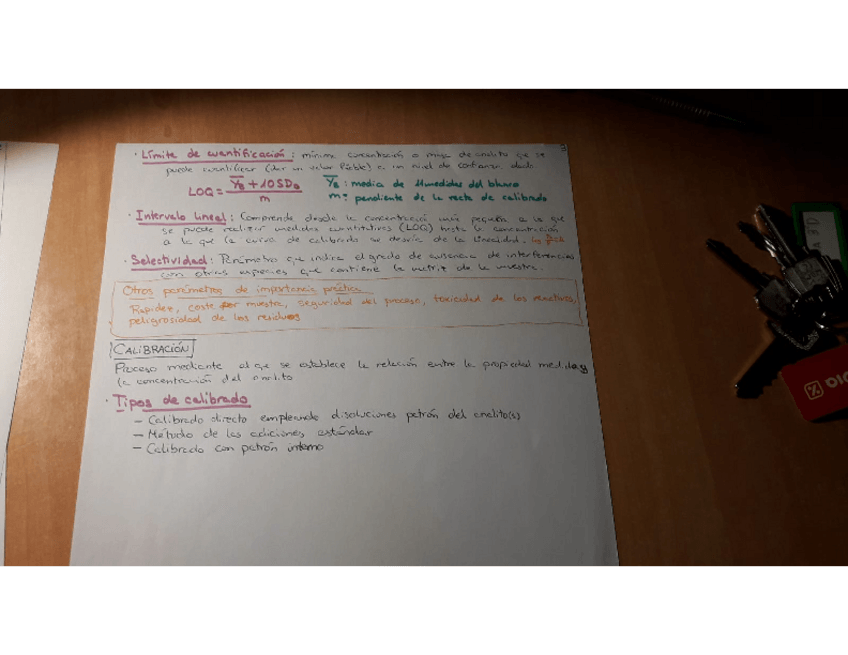 · Límite de cuantificación: mínima concentración o masa de analito q̄ se
puede cuantificar (dar un valor fiable) a un nivel de confianza dado
LOQ = Y̅B + 10SDB / m
Y̅B: media de medidas del blanco
m: pendiente de la recta de calibrado
· Intervalo lineal: Comprende desde la concentración más pequeña a la que
se puede realizar medidas cuantitativas (LOQ) hasta la concentración
a la que la curva de calibrado se desvía de la linealidad.
· Selectividad: Parámetro que indica el grado de ausencia de interferencias
con otras especies que contiene la matriz de la muestra.
Otros parámetros de importancia práctica
Rapidez, coste por muestra, seguridad del proceso, toxicidad de los reactivos,
peligrosidad de los residuos
CALIBRACIÓN
Proceso mediante el q̄ se establece la relación entre la propiedad medida y
la concentración del analito
· Tipos de calibrado
- Calibrado directo empleando disoluciones patrón del analito(s)
- Método de las adiciones estándar
- Calibrado con patrón interno
DIA